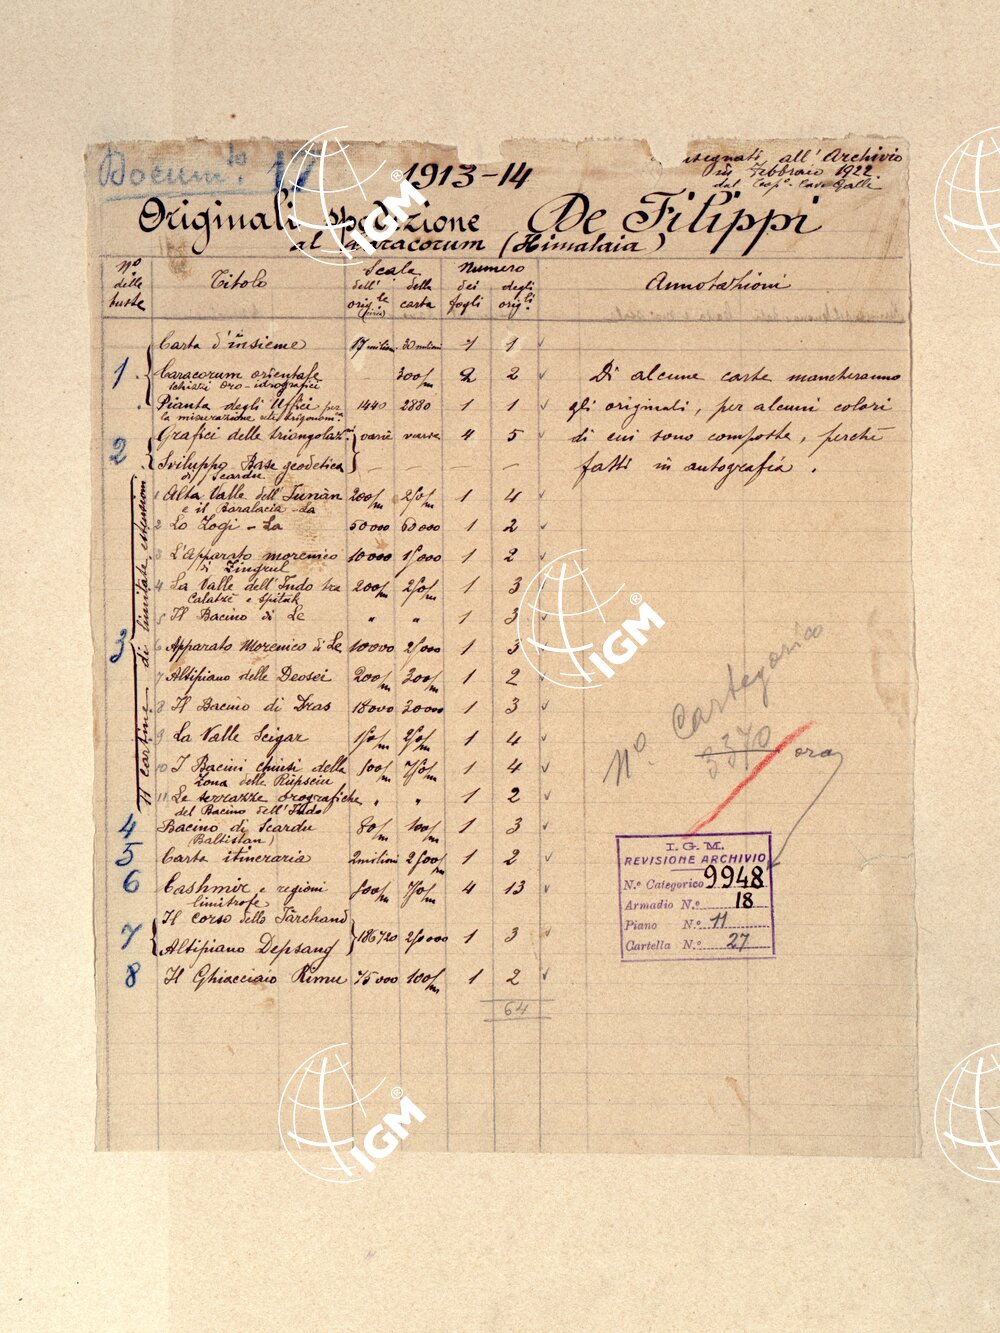 Docum.to 17
1913-14
segnati all'Archivio
in Febbraio 1922
dal Cap.º Cav. Galli
Originali spedizione De Filippi
al Caracorum (Himalaia)
Nº delle buste
Titolo
Scala
dell' orig.le
della carta
Numero
dei fogli
degli orig.li
Annotazioni
Carta d'insieme 17 milioni 30 milioni 1 1
1 Caracorum orientale 300/m 2 2
schizzi oro-idrografici
Pianta degli Uffici per 1440 2880 1 1
la misurazione
Grafici delle triangolaz.ni varie varie 4 5
2
Sviluppo Base geodetica — — — —
di Scardu
Di alcune carte mancheranno
gli originali, per alcuni colori
di cui sono composte, perchè
fatti in autografia.
11 cartine di limitate estensioni
3
1 Alta Valle dell' 200/m 250/m 1 4
e il Baralacia-La
2 Lo Zogi-La 50000 60000 1 2
3 L'Apparato morenico 10000 15000 1 2
di Zingrul
4 La Valle dell'Indo tra 200/m 250/m 1 3
Calatzè e Spituk
5 Il Bacino di Le " " 1 3
6 Apparato Morenico di Le 10000 25000 1 3
7 Altipiano delle Deosei 200/m 300/m 1 2
8 Il Bacino di Dras 18000 30000 1 3
9 La Valle Scigar 150/m 250/m 1 4
10 I Bacini chiusi della 500/m 750/m 1 4
Zona della Rupsciu
11 Le terrazze orografiche " " 1 2
del Bacino dell'Indo
4 Bacino di Scardu 80/m 100/m 1 3
(Baltistan)
5 Carta itineraria 2milioni 2500/m 1 2
6 Cashmir e regioni 500/m 750/m 4 13
limitrofe
7 Il corso dello Jarchand
Altipiano Depsang 186720 250000 1 3
8 Il Ghiacciaio Rimu 75000 100/m 1 2
64
Nº Categorico
3370 ora
I.G.M.
REVISIONE ARCHIVIO
N.º Categorico 9948
Armadio N.º 18
Piano N.º 11
Cartella N.º 27
IGM
IGM
IGM